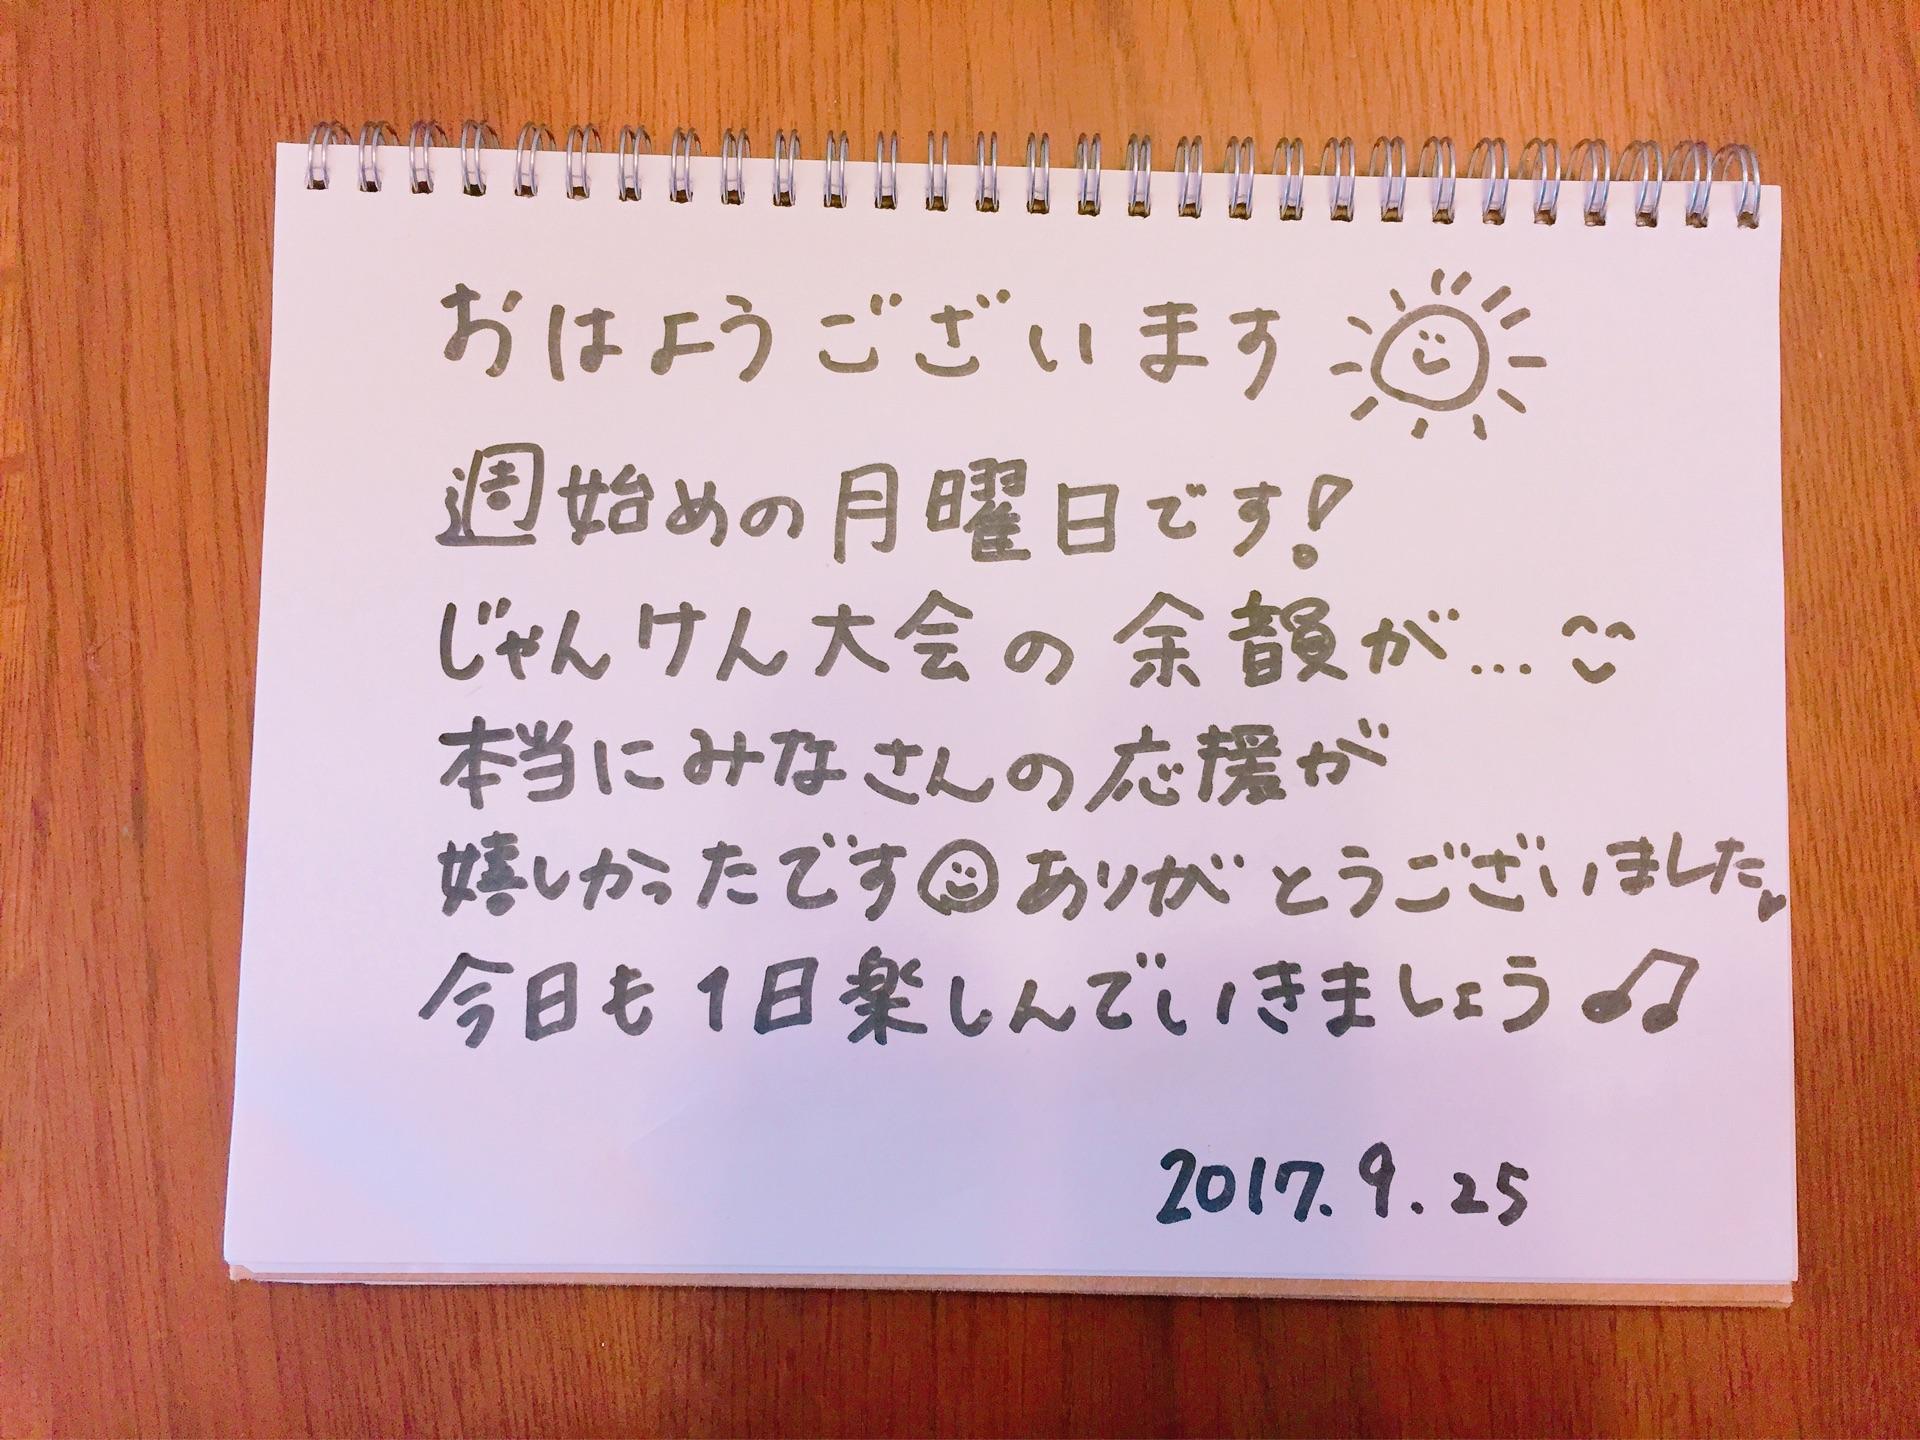 おはようございます
週始めの月曜日です!
じゃんけん大会の余韻が...
本当にみなさんの応援が
嬉しかったです ありがとうございました
今日も1日楽しんでいきましょう♫
2017.9.25